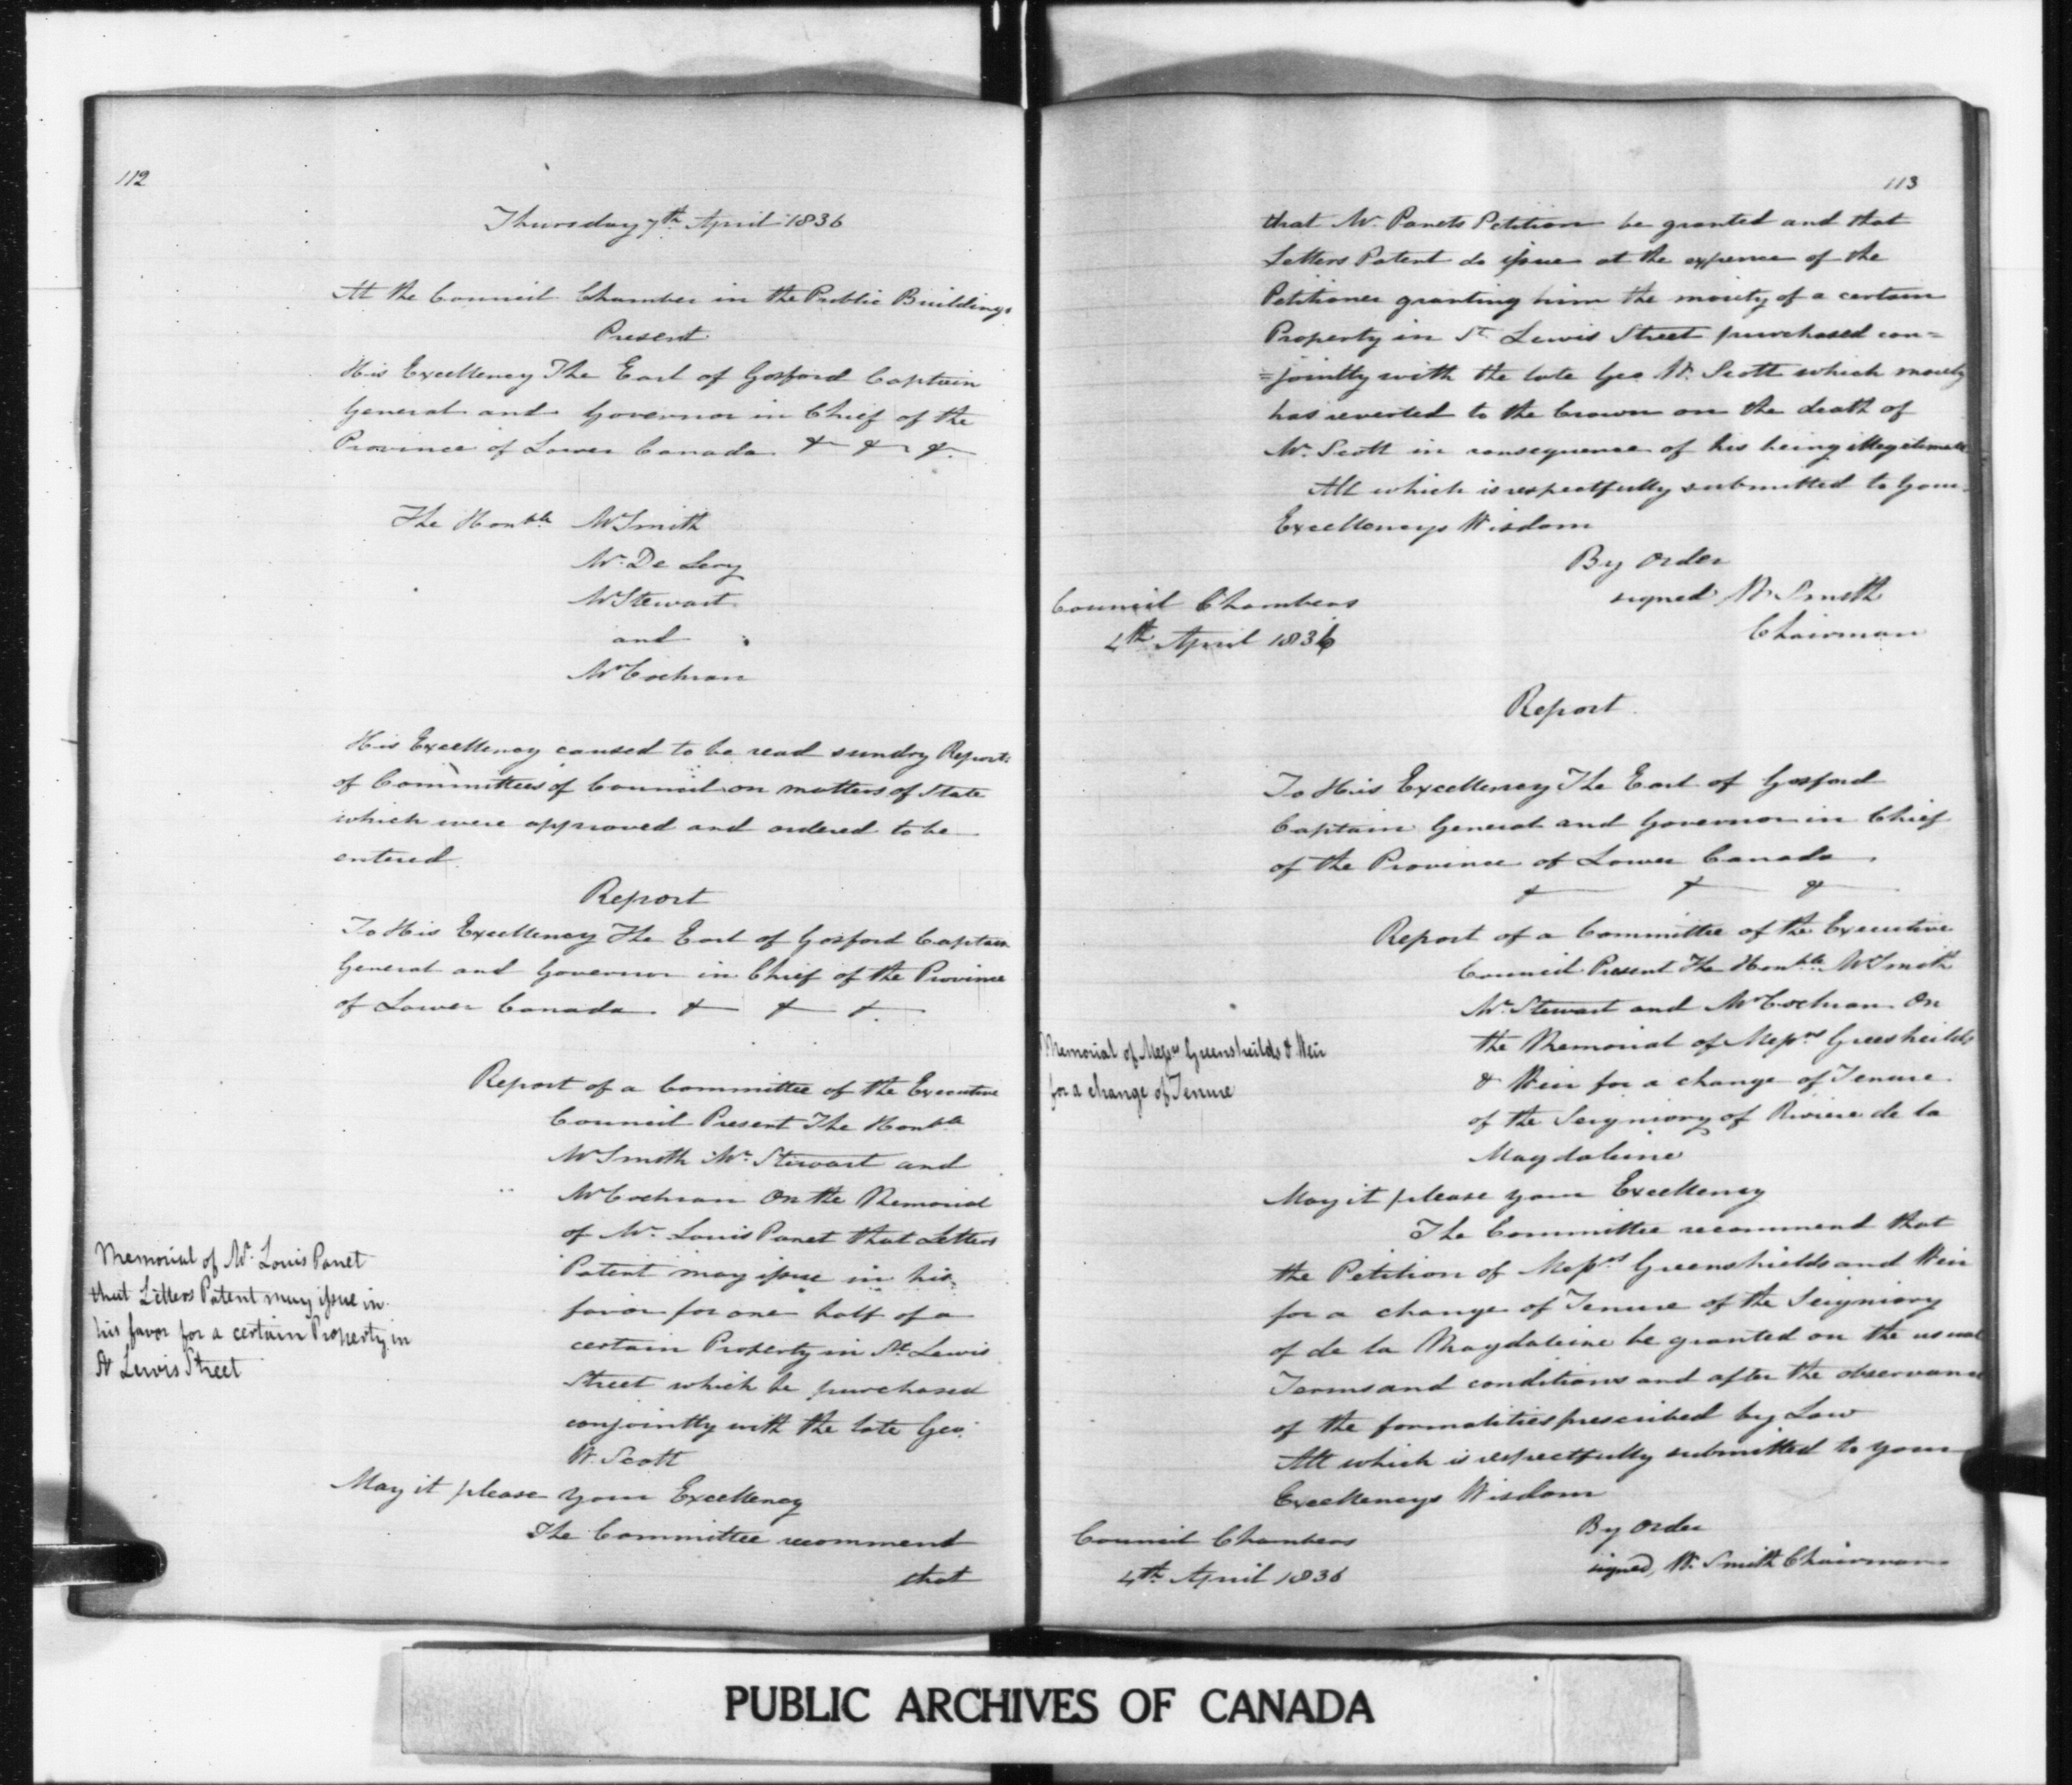 112
Thursday 7th April 1836
At the Council Chamber in the Public Buildings
Present
His Excellency The Earl of Gosford Captain
General and Governor in Chief of the
Province of Lower Canada & & &.
The Honble Mr Smith
Mr De Lery
Mr Stewart
and
Mr Cochran
His Excellency caused to be read sundry Reports
of Committees of Council on matters of State
which were approved and ordered to be
entered
Report
To His Excellency The Earl of Gosford Captain
General and Governor in Chief of the Province
of Lower Canada & & &.
Report of a Committee of the Executive
Council Present The Honble
Mr Smith Mr Stewart and
Mr Cochran On the Memorial
of Mr Louis Panet that Letters
Patent may issue in his
favor for one half of a
certain Property in St Lewis
Street which he purchased
conjointly with the late Geo.
W. Scott
Memorial of Mr Louis Panet
that Letters Patent may issue in
his favor for a certain Property in
St Lewis Street
May it please your Excellency
The Committee recommend
that
113
that Mr Panets Petition be granted and that
Letters Patent do issue at the expence of the
Petitioner granting him the moiety of a certain
Property in St Lewis Street purchased con=
=jointly with the late Geo W. Scott which moiety
has reverted to the Crown on the death of
Mr Scott in consequence of his being illegitimate
All which is respectfully submitted to your
Excellencys Wisdom
By Order
signed W. Smith
Chairman
Council Chambers
4th April 1836
Report
To His Excellency The Earl of Gosford
Captain General and Governor in Chief
of the Province of Lower Canada.
& & &
Report of a Committee of the Executive
Council Present The Honble Mr Smith
Mr Stewart and Mr Cochran On
the Memorial of Messrs Greensheilds
& Weir for a change of Tenure
of the Seigniory of Riviere de la
Magdaleine
Memorial of Messrs Greensheilds & Weir
for a change of Tenure
May it please your Excellency
The Committee recommend that
the Petition of Messrs Greenshields and Weir
for a change of Tenure of the Seigniory
of de la Magdaleine be granted on the usual
Terms and conditions and after the observance
of the formalities prescribed by Law
All which is respectfully submitted to your
Excellencys Wisdom
By Order
signed, W. Smith Chairman
Council Chambers
4th April 1836
PUBLIC ARCHIVES OF CANADA